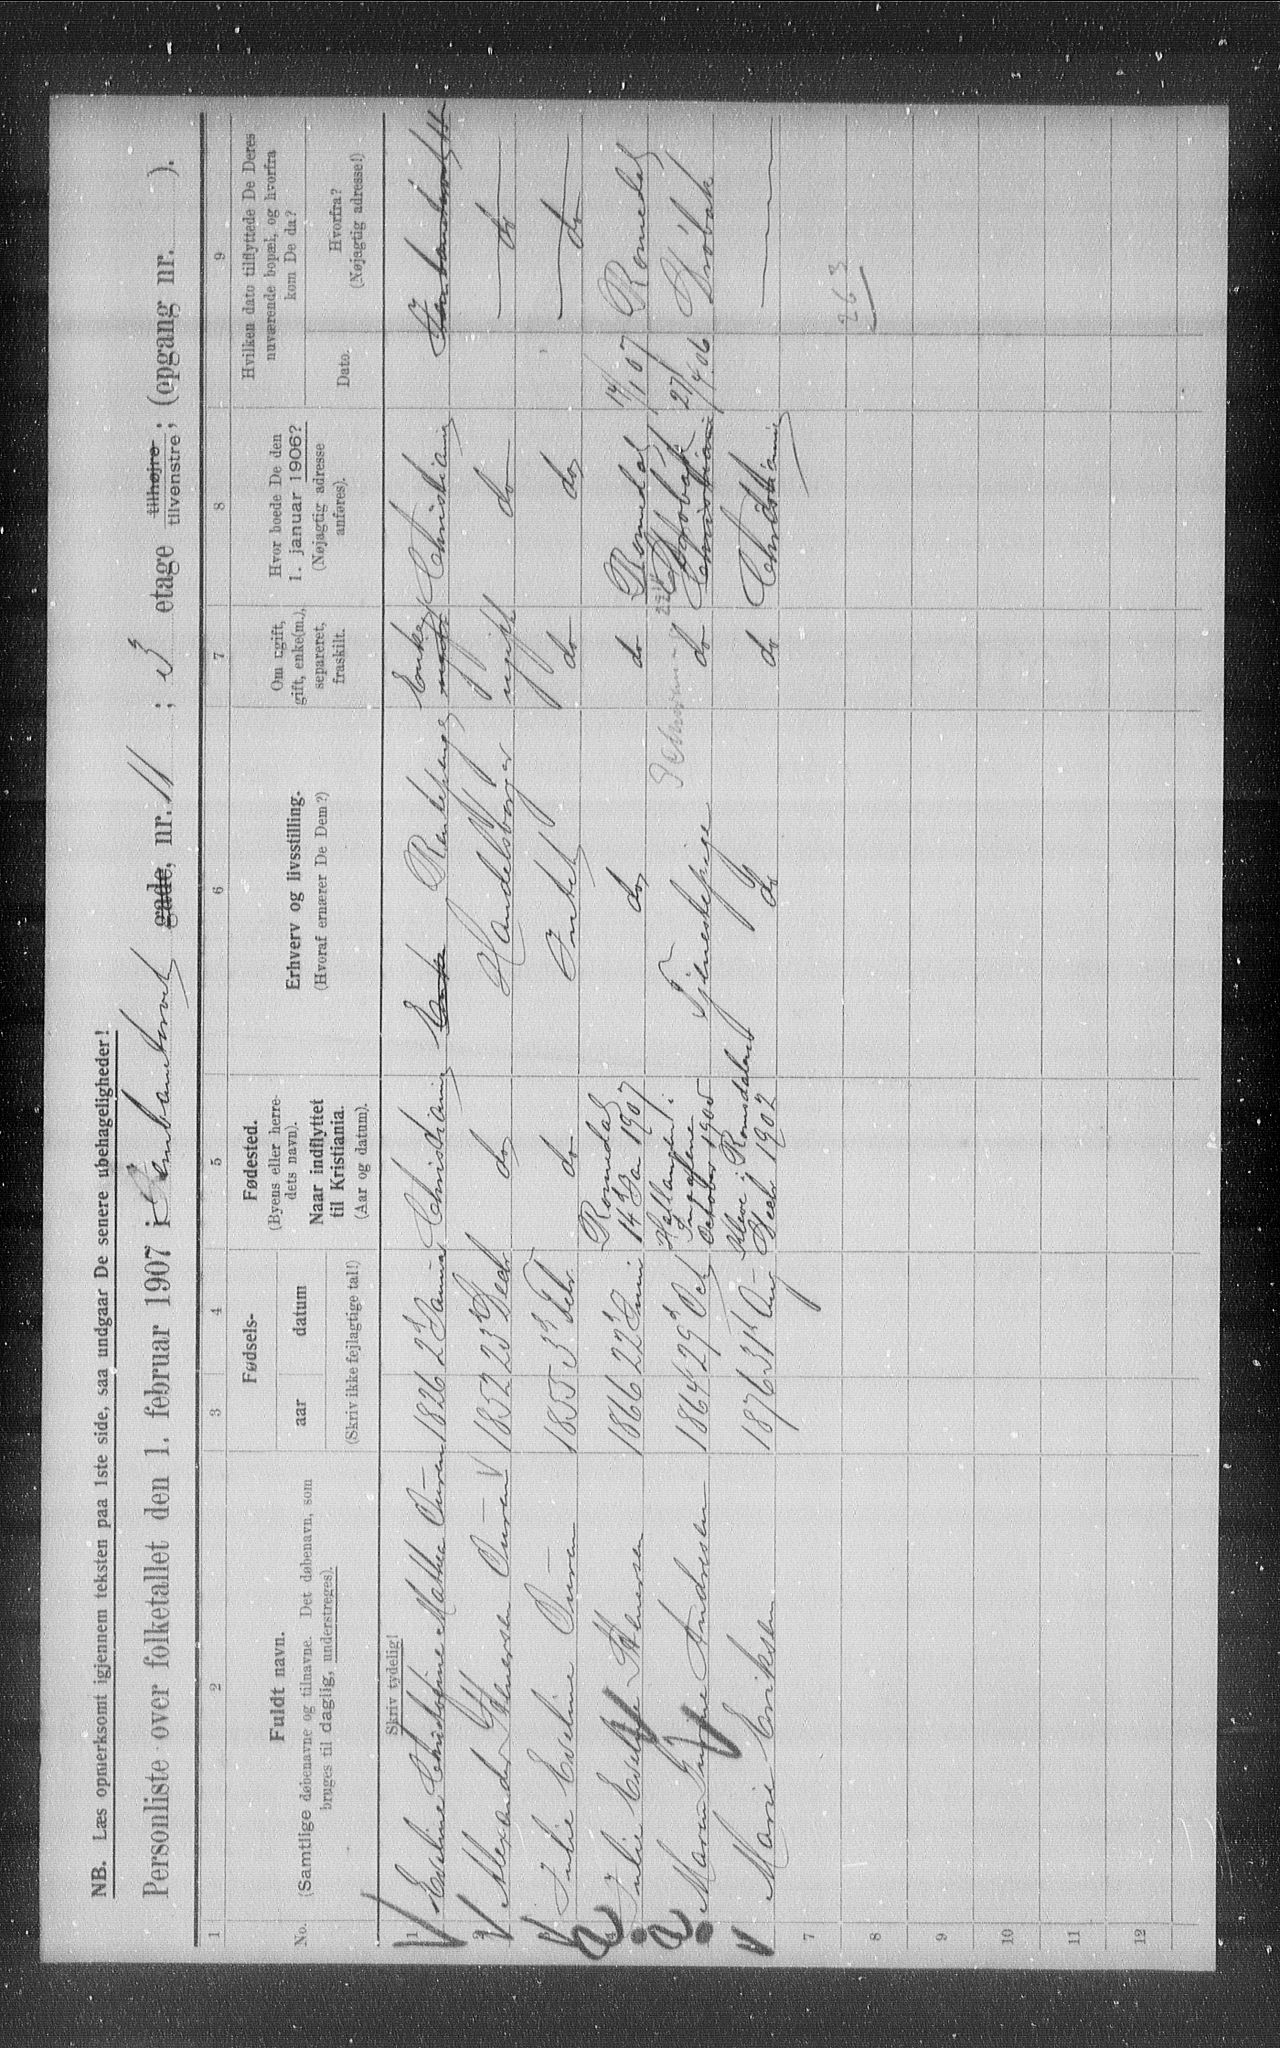 NB. Læs opmerksomt igjennem teksten paa 1ste side, saa undgaar De senere ubehageligheder!
Personliste over folketallet den 1. februar 1907 i Jernbanetorvet gade, nr. 11 ; 3 etage tilhøjre tilvenstre; (opgang nr. ).
1 2 3 4 5 6 7 8 9
No.
Fuldt navn.
(Samtlige døbenavne og tilnavne. Det døbenavn, som
bruges til daglig, understreges).
Fødsels-
aar datum
(Skriv ikke fejlagtige tal!)
Fødested.
(Byens eller herre-
dets navn).
Naar indflyttet
til Kristiania.
(Aar og datum).
Erhverv og livsstilling.
(Hvoraf ernærer De Dem?)
Om ugift,
gift, enke(m.),
separeret,
fraskilt.
Hvor boede De den
1. januar 1906?
(Nøjagtig adresse
anføres).
Hvilken dato tilflyttede De Deres
nuværende bopæl, og hvorfra
kom De da?
Dato.
Hvorfra?
(Nøjagtig adresse!)
Skriv tydelig!
1 Eveline Christofine Mathea Ouren 1826 2d Januar Christiania Enke Rentepenge Enke Christiania Jernbanetorvet 11
2 Alexander Stenersen Ouren 1852 23d Decbr do Handelsborger ugift do do
3 Julie Eveline Ouren 1855 3d Febr. do Intet do do do
4 Julie Stenersen 1866 22d Juni Romedal 14d Jan 1907 do do Romedal 14/1 07 Romedal
5 Maren Andresen 1864 29d Oct October 1905 Tjenestepige do Drøbak Christiania 27/4 06 Drøbak
6 Marie Eriksen 1876 31t Aug i Romsdalen Decbr 1902 do do Christiania
7
8
9
10
11
12
263